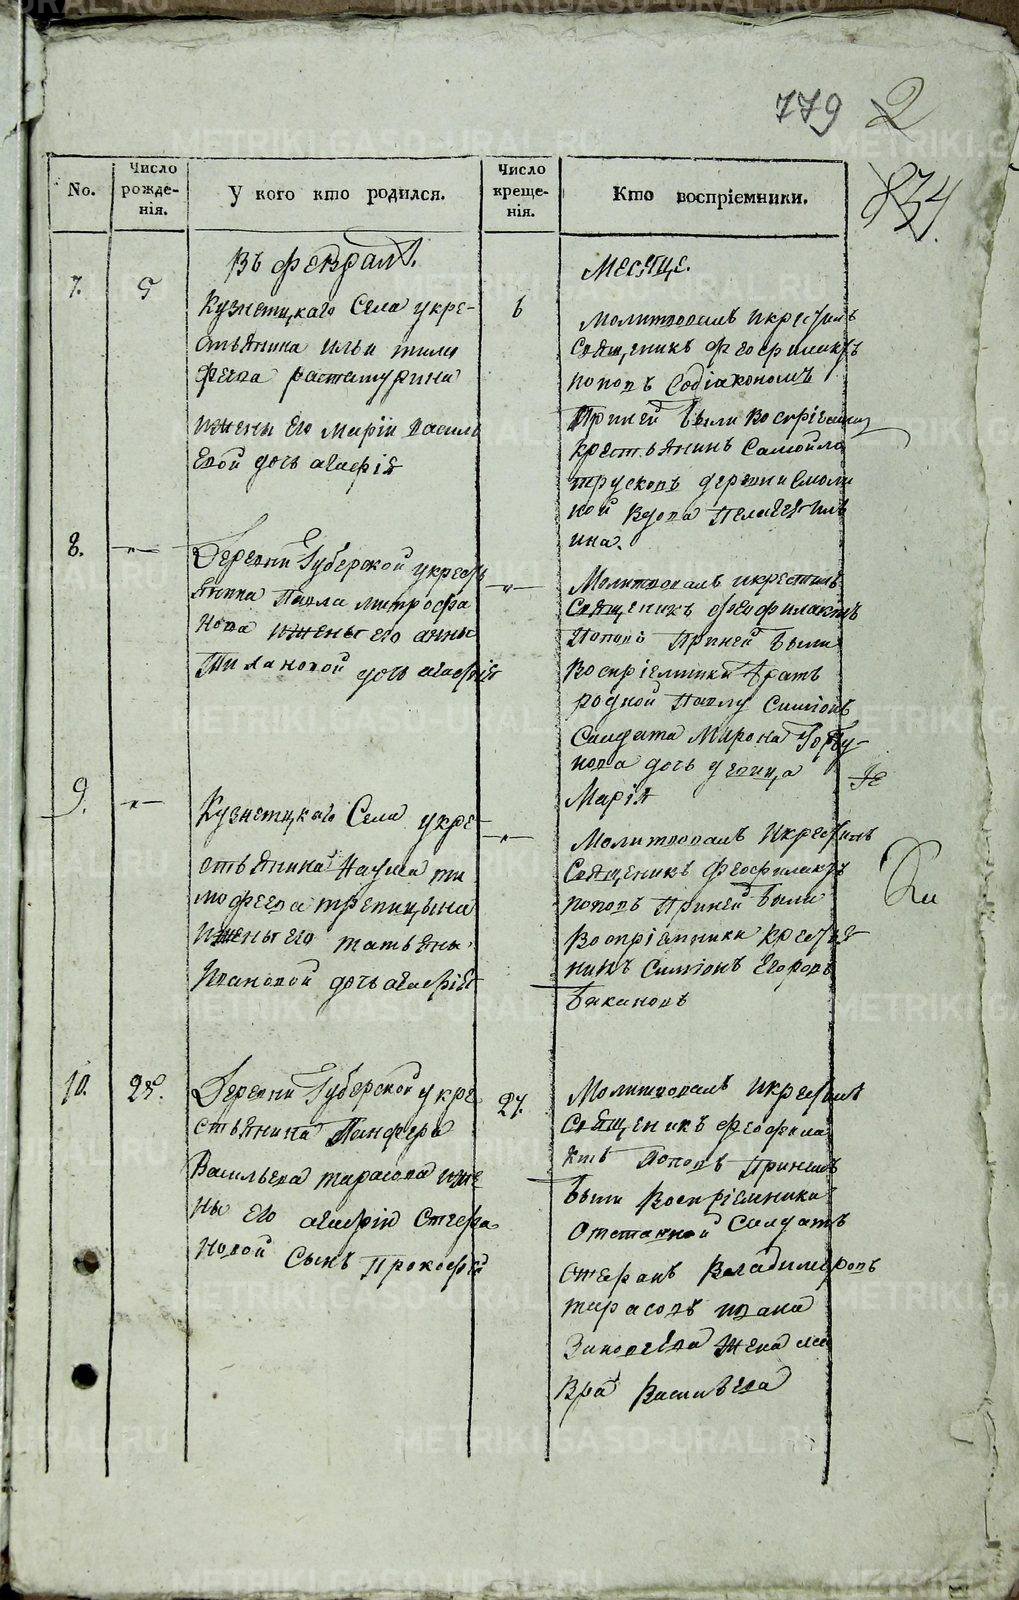 779 2
834
No.
Число рожде-нія.
У кого кто родился.
Число креще-нія.
Кто воспріемники.
Въ февралѣ.
Месяце.
7.
5
Кузнецкаго Села укре-
стьянина Ильи тимо
феева растатурина
ижены Его Маріи василь
Евой дочь агафія
6
Молитвовалъ икрестилъ
Священикъ феофилактъ
поповъ Содіакономъ
Приней были Воспріемники
крестьянинъ Самойла
трусковъ деревни Смоли
ной Вдова Пелагея
ина.
8.
-"-
Деревни Губерской укресть
янина Павла митрофа
нова ижены его анны
Милановой дочь агафія
-"-
Молитвовалъ икрестилъ
Священикъ феофилактъ
Поповъ Приней были
Воспріемники братъ
родной Павлу Симіонъ
Салдата Мирона Горбу-
нова дочь девица
Марія
9.
-"-
Кузнецкаго Села укре-
стьянина Наума ти
мофеева трепицына
ижены его татьяны
Ивановой дочь агафія
-"-
Молитвовалъ Икрестилъ
Священикъ Феофилактъ
поповъ Приней были
Воспріемники Кресьтя
нинъ Симіонъ Егоровъ
бакановъ
10.
25.
Деревни Губерской укре
стьянина Панфера
Васильева тарасова иже
ны его агафіи Стефа
новой Сынъ Прокофій
27.
Молитвовалъ икрестилъ
Священикъ Феофила
ктъ Поповъ Принемъ
были Воспріемники
Отставной Салдатъ
стефанъ Владимеровъ
тарасовъ ивана
Зиновѣева жена
Вра Василѣева